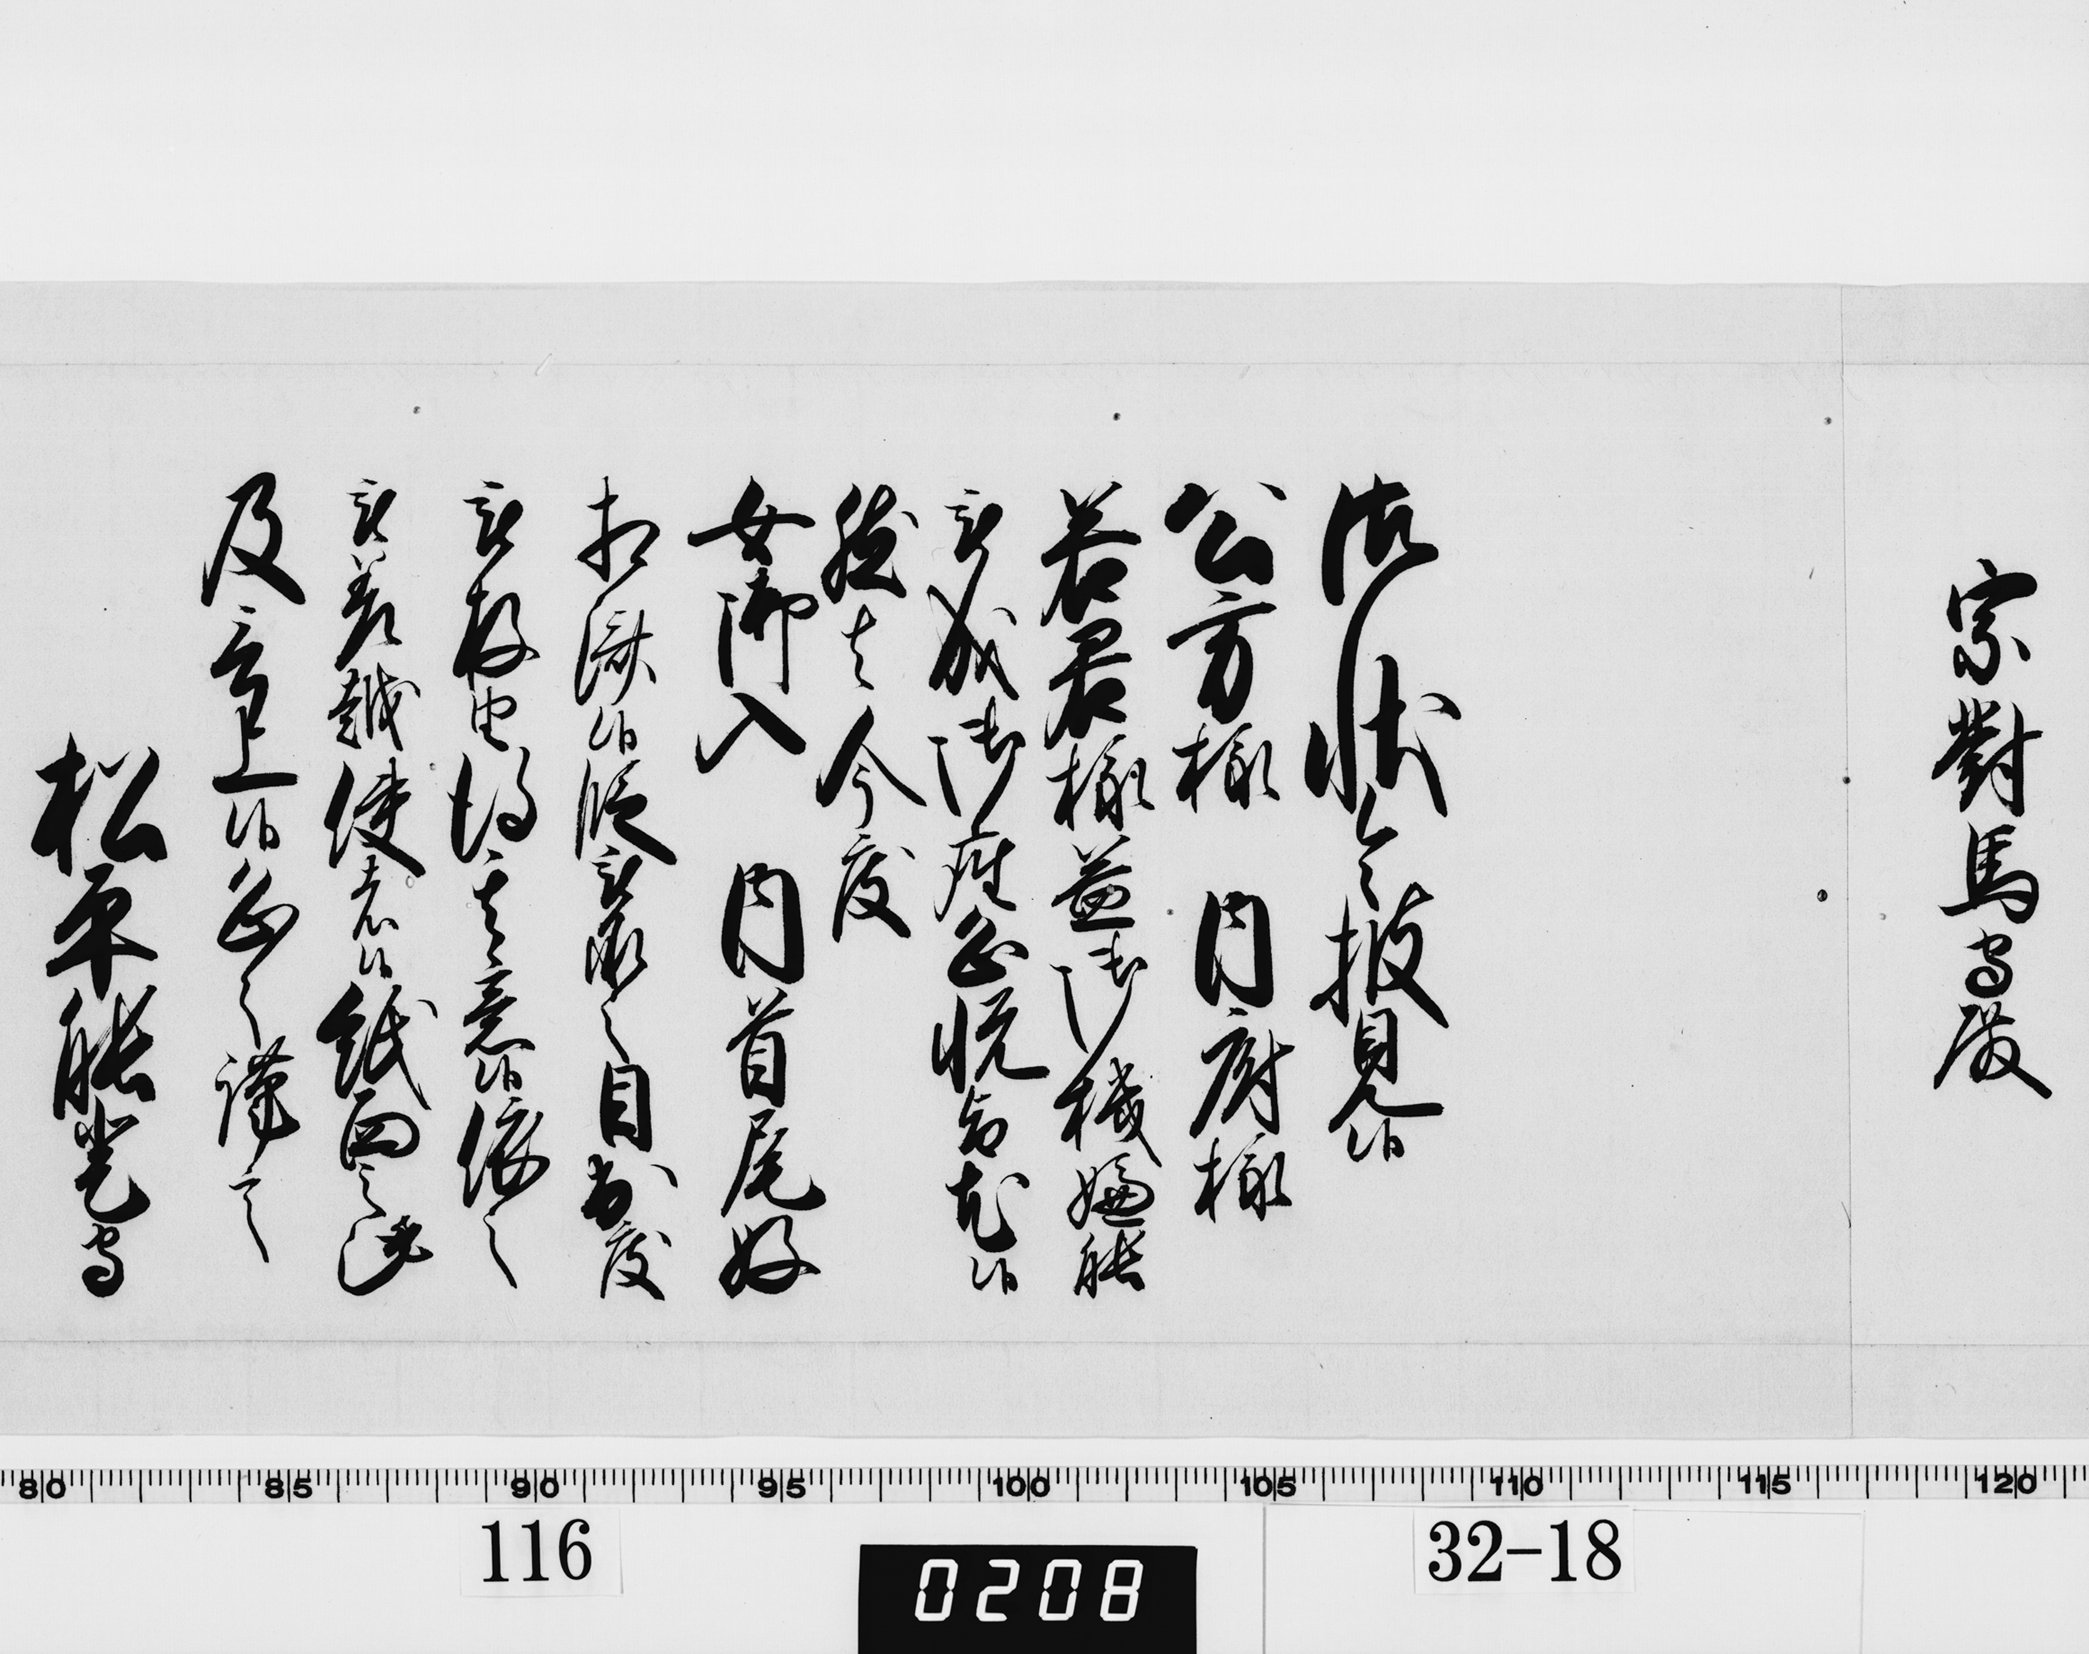 宗對馬守殿
御状令披見候
公方様 内府様
若君様益御機嫌能
被成御座目出悦思召候
然者今度
女御入 内首尾好
相濟候段被承之目出度
被存由得其意候依之
被差越使者候紙面之趣
及言上候恐々謹言
松平能登守
80 85 90 95 100 105 110 115 120
116
0208
32-18